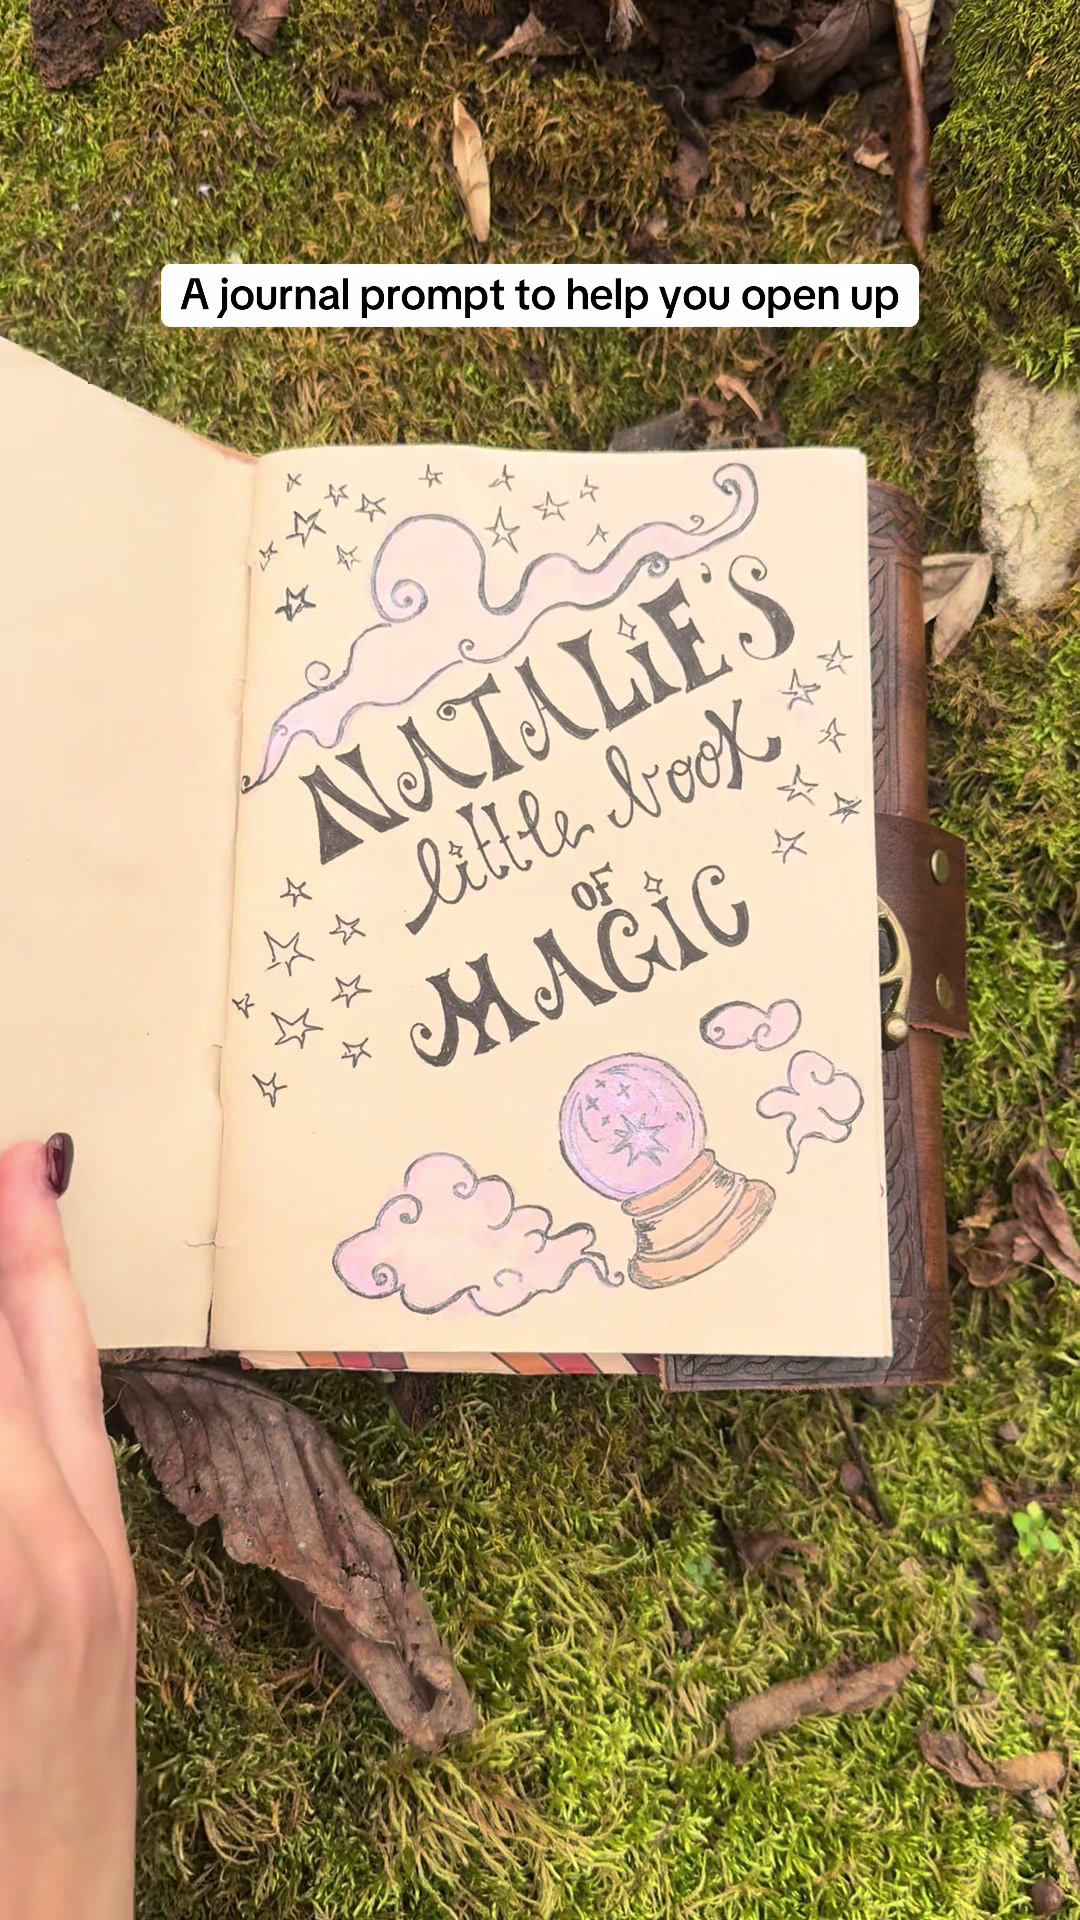 A journal prompt to help you open up
NATALiE'S
little book
OF
MAGiC